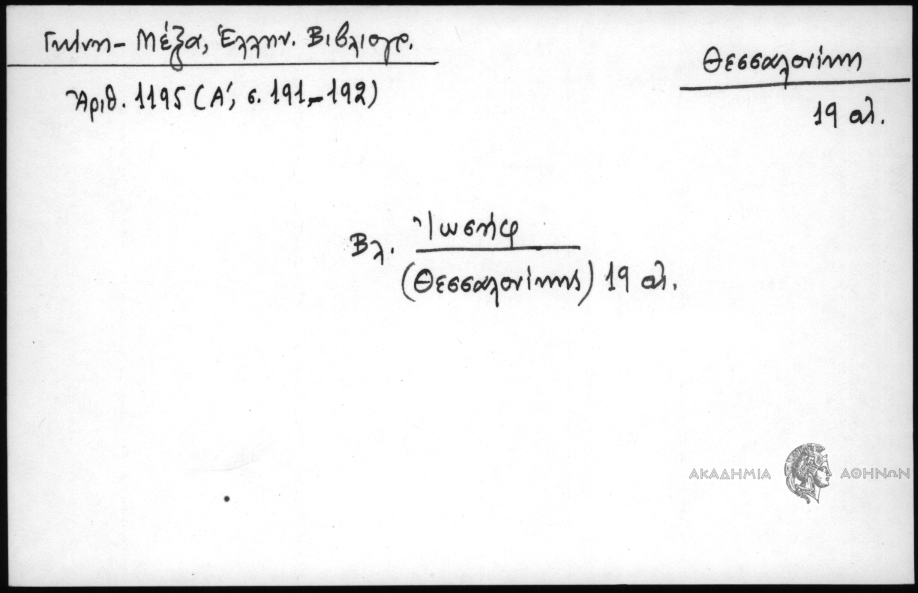 Γκίνη - Μέξα, Ἑλλην. Βιβλιογρ.
Ἀριθ. 1195 (Α΄, σ. 191-192)
Θεσσαλονίκη
19 αἰ.
Βλ. Ἰωσήφ
(Θεσσαλονίκης) 19 αἰ.
ΑΚΑΔΗΜΙΑ ΑΘΗΝΩΝ